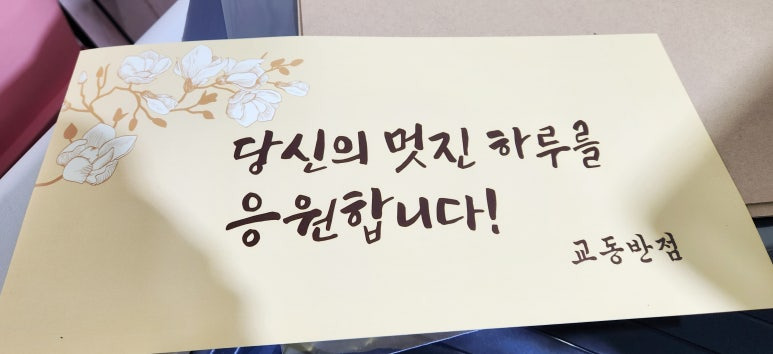 당신의 멋진 하루를
응원합니다!
교동반점